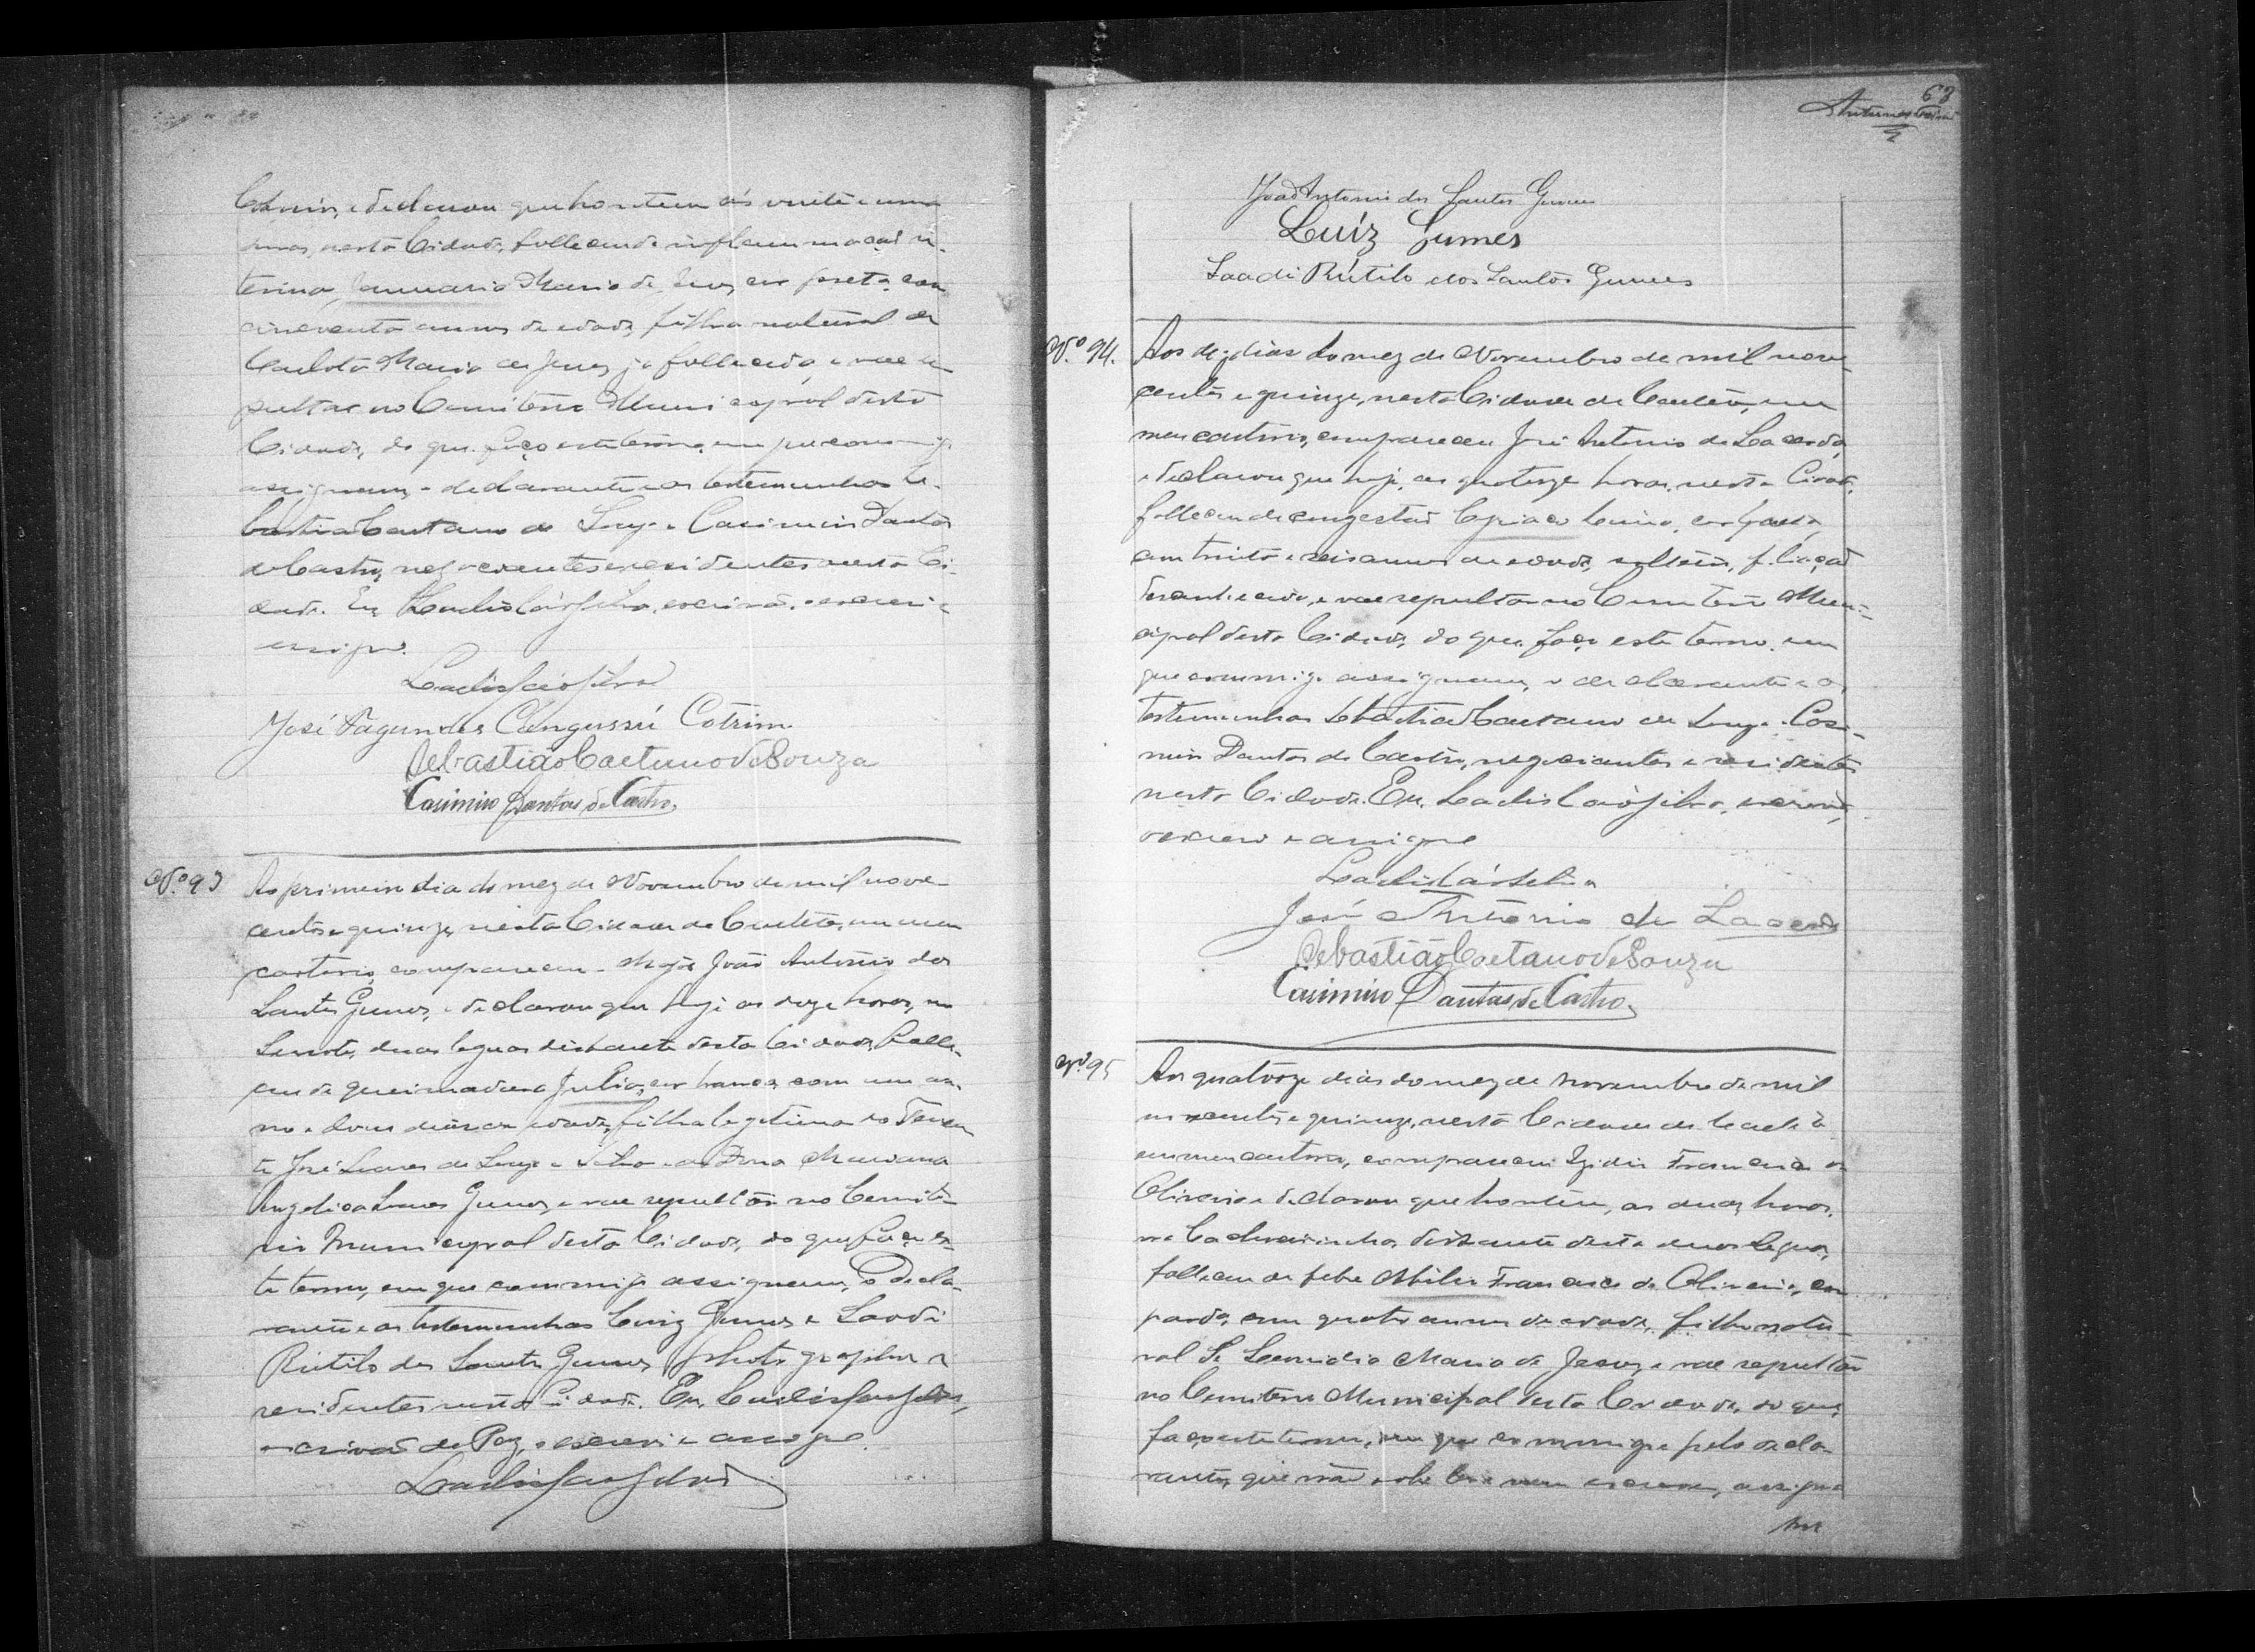 Cotrim, e declarou que hontem ás vinte e uma
horas, nesta Cidade, falleceu de inflammação u-
terina, Januaria Maria de Jesus, cor preta, com
cincoenta annos de edade, filha natural de
Carlota Maria de Jesus, já fallecida, e vae se
pultar no Cemiterio Municipal desta
Cidade, do que faço este termo, em que commigo
assignam, o declarante e as testemunhas Se-
bastião Caetano de Souza e Casimiro Dantas
de Castro, negociantes e residentes nesta Ci-
dade. Eu Ladisláo Silva, escrivão, o escrevi e
assigno.
Ladisláo Silva
José Fagundes Cangussú Cotrim.
Sebastião Caetano de Souza
Casimiro Dantas de Castro
Nº 93 Ao primeiro dia do mez de Novembro de mil nove-
centos e quinze, nesta Cidade de Caeteté, em meu
cartorio, compareceu o Major João Antonio dos
Santos Gumes, e declarou que hoje as doze horas, no
duas leguas distante desta Cidade, falle-
ceu de queimadura Julia, cor branca, com um an-
no e dous dias de edade, filha legitima do Tenen
te José Soares de Souza e Silva e de Dona
Angelica Soares Gumes, e vae sepultar no Cemite-
rio Municipal desta Cidade, do que faço es-
te termo, em que commigo assignam, o Decla-
rante e as testemunhas Luiz Gumes e Saadi
Rútilo dos Santos Gumes, photographos e
residentes nesta Cidade. Eu, Ladisláo Silva,
escrivão de Paz, o escrevi e assigno.
Ladisláo Silva
63
Antunes Cotrim
João Antonio dos Santos Gumes
Luíz Gumes
Saadi Rútilo dos Santos Gumes
Nº 94. Aos dez dias do mez de Novembro de mil nove-
centos e quinze, nesta Cidade de Caeteté, em
meu cartorio, compareceu José Antonio de Lacerda,
e declarou que hoje, as quatorze horas, nesta Cidade,
falleceu de congestão cor parda,
com trinta e seis annos de edade, solteiro, filiação
desconhecida, e vae sepultar no Cemiterio Muni-
cipal desta Cidade, do que faço este termo, em
que commigo assignam, o declarante e as
testemunhas Sebastião Caetano de Souza e Casi-
miro Dantas de Castro, negociantes e residentes
nesta Cidade. Eu, Ladisláo Silva, escrivão,
o escrevi e assigno
Ladisláo Silva
José Antonio de Lacerda
Sebastião Caetano de Souza
Casimiro Dantas de Castro
Nº 95 Aos quatorze dias do mez de novembro de mil
novecentos e quinze, nesta Cidade de Caeteté
em meu cartorio, compareceu Francisco de
Oliveira e declarou que hontem, as duas horas,
na distante desta duas leguas,
falleceu de febre Francisco de Oliveira, cor
parda, com quatro annos de edade, filho natu-
ral de Leonidia Maria de Jesus, e vae sepultar
no Cemiterio Municipal desta Cidade, do que,
faço este termo, em que commigo pelo decla-
rante, que não sabe ler e nem escrever, assigna